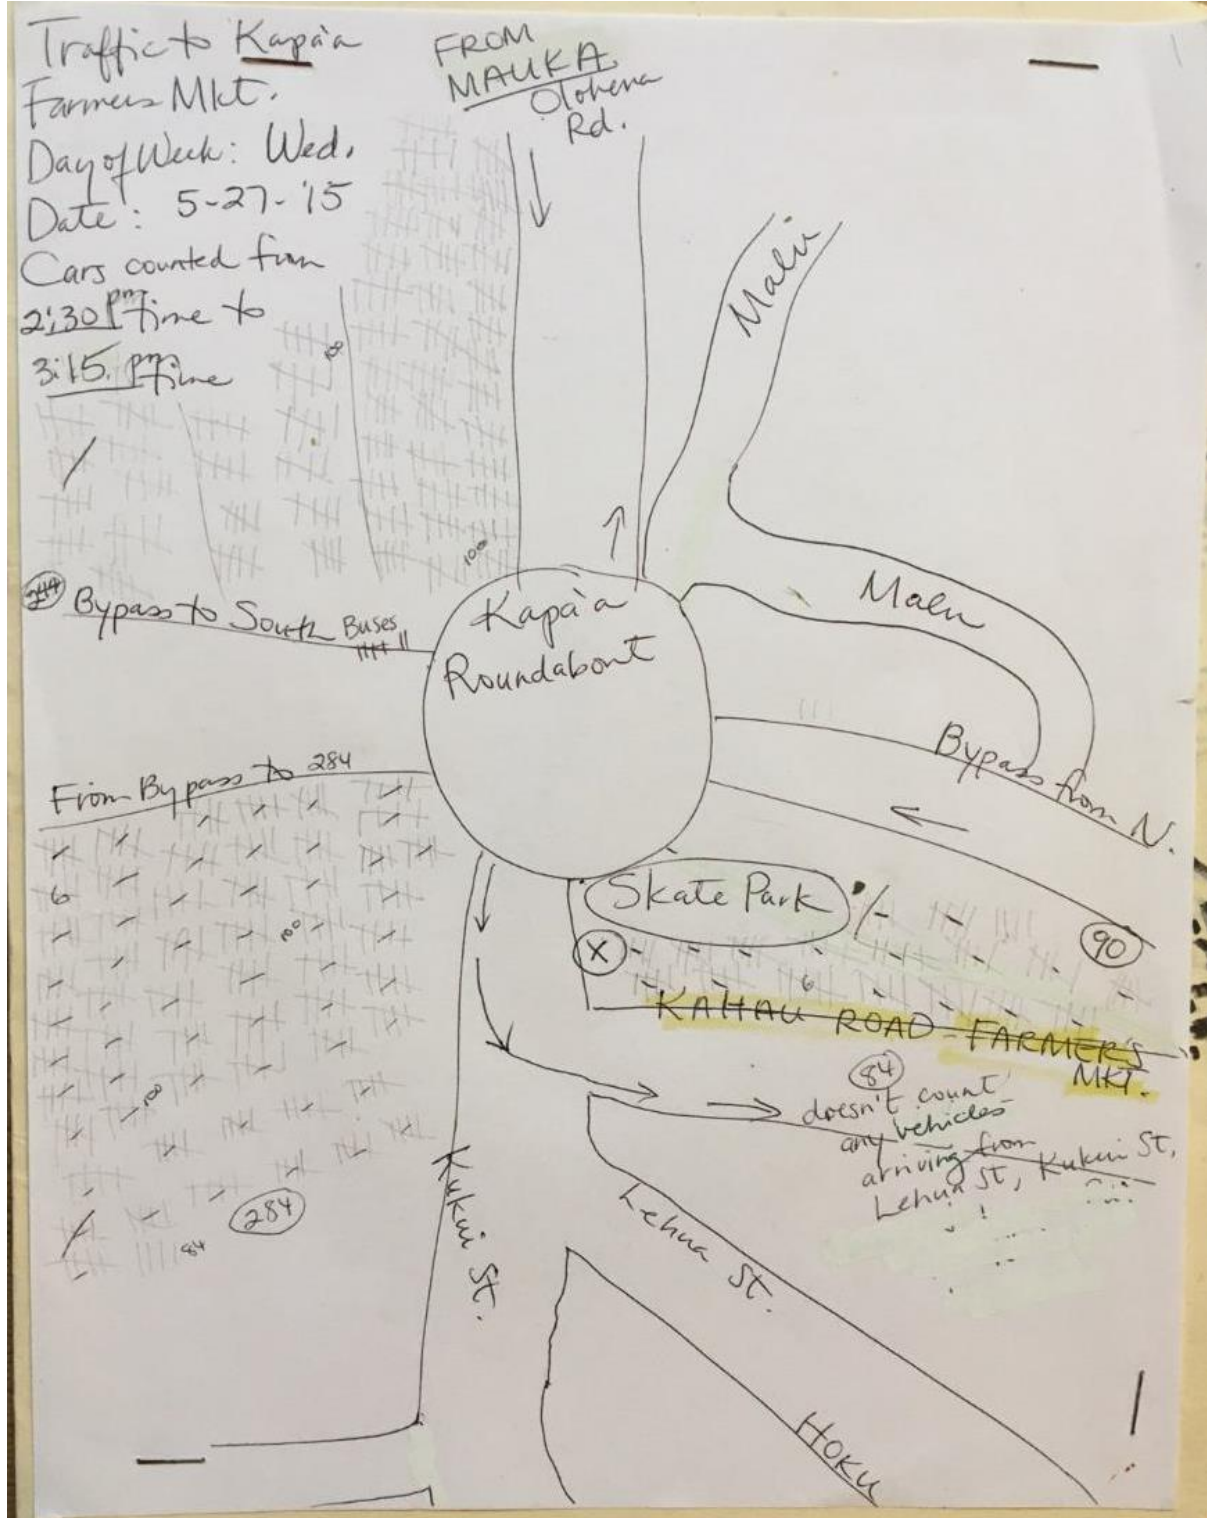 Traffic to Kapa'a
Farmers Mkt.
Day of Week: Wed.
Date: 5-27-'15
Cars counted from
2:30 pm time to
3:15 pm time
FROM
MAUKA
Olohena
Rd.
Malu
Malu
100
100
244
Bypass to South
Buses
Kapa'a
Roundabout
Bypass from N.
From Bypass to 284
6
100
100
284
84
Skate Park
X
90
6
KAHAU ROAD - FARMER'S
MKT.
84
doesn't count
any vehicles
arriving from
Lehua St, Kukui St,
Kukui St.
Lehua St.
HOKU